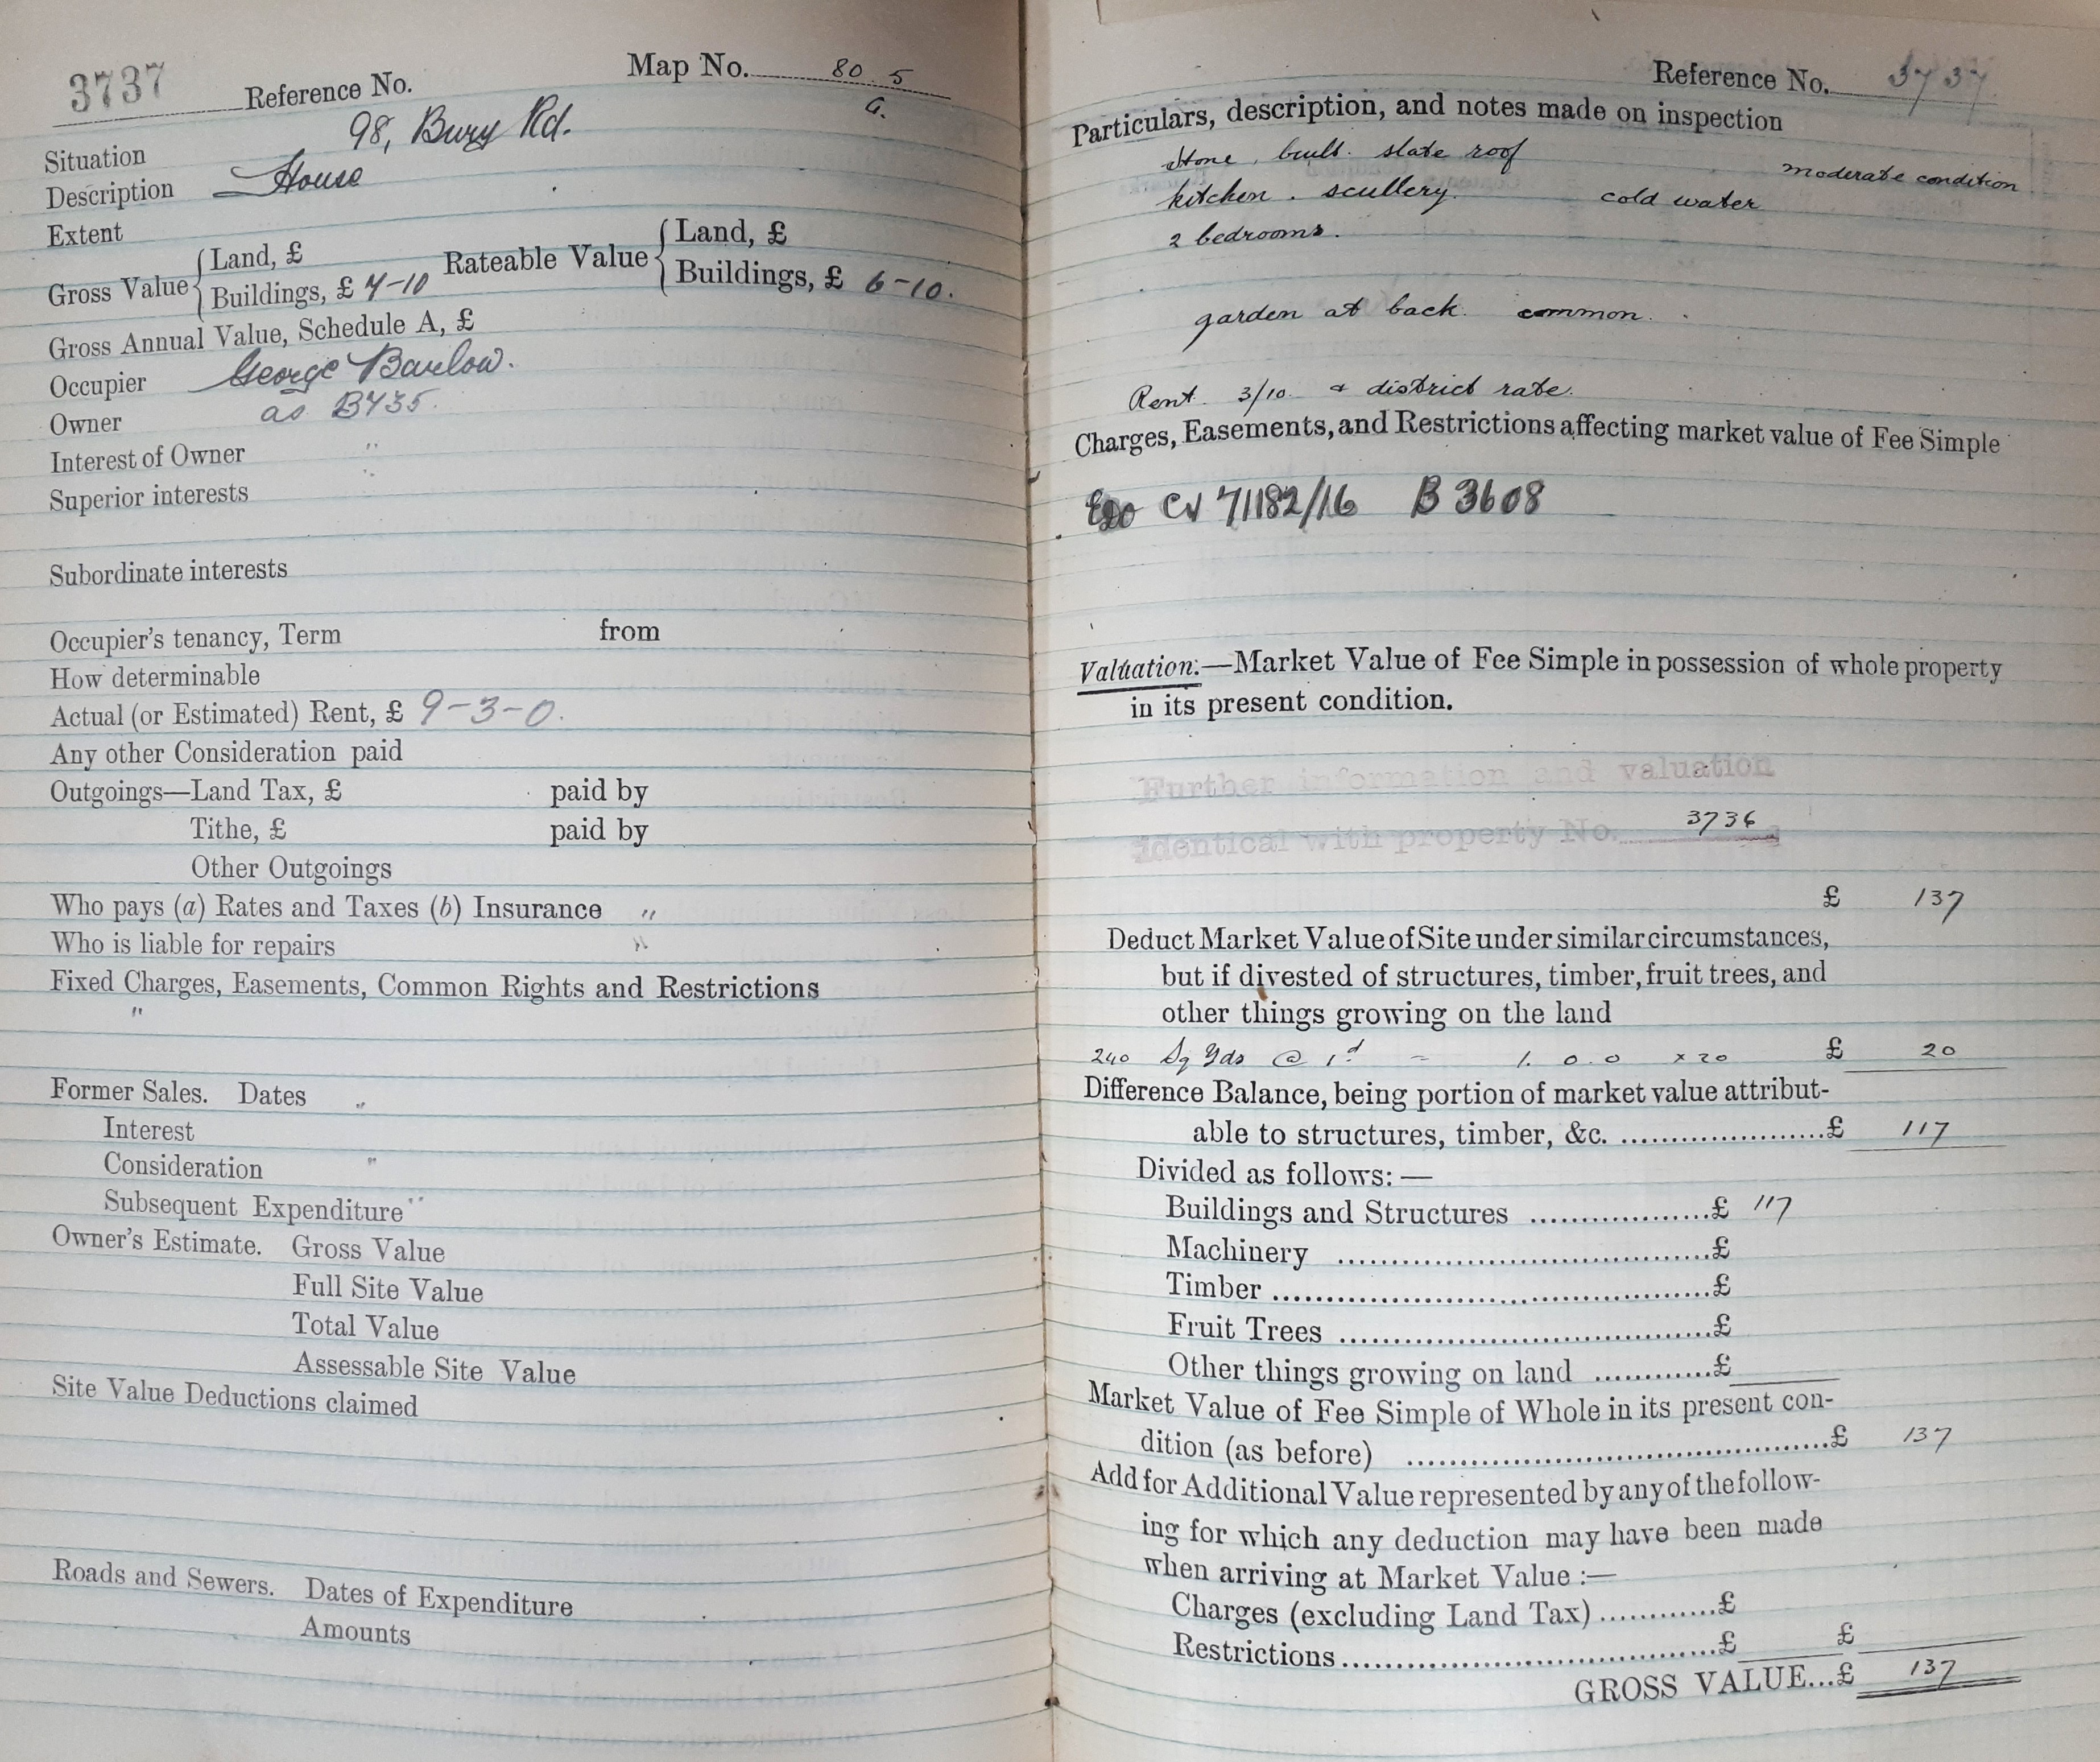 3737 Reference No. Map No. 80.5
G.
Situation 98, Bury Rd.
Description House
Extent
Gross Value { Land, £ Rateable Value { Land, £
Buildings, £ 7-10 Buildings, £ 6-10.
Gross Annual Value, Schedule A, £
Occupier George Barlow.
Owner as B735.
Interest of Owner "
Superior interests "
Subordinate interests
Occupier's tenancy, Term from
How determinable
Actual (or Estimated) Rent, £ 9-3-0.
Any other Consideration paid
Outgoings—Land Tax, £ paid by
Tithe, £ paid by
Other Outgoings
Who pays (a) Rates and Taxes (b) Insurance "
Who is liable for repairs "
Fixed Charges, Easements, Common Rights and Restrictions
"
Former Sales. Dates "
Interest
Consideration "
Subsequent Expenditure "
Owner's Estimate. Gross Value
Full Site Value
Total Value
Assessable Site Value
Site Value Deductions claimed
Roads and Sewers. Dates of Expenditure
Amounts
Reference No. 3737
Particulars, description, and notes made on inspection
Stone built. slate roof moderate condition
kitchen. scullery. cold water
2 bedrooms.
garden at back. common.
Rent 3/10. & district rate.
Charges, Easements, and Restrictions affecting market value of Fee Simple
71182/16 B 3608
Valuation:—Market Value of Fee Simple in possession of whole property
in its present condition.
Further information and valuation
identical with property No. 3736
£ 137
Deduct Market Value of Site under similar circumstances,
but if divested of structures, timber, fruit trees, and
other things growing on the land
240 Sq Yds @ 1d = 1.0.0 x 20 £ 20
Difference Balance, being portion of market value attribut-
able to structures, timber, &c. ....................£ 117
Divided as follows:—
Buildings and Structures ..................£ 117
Machinery ......................................£
Timber ............................................£
Fruit Trees ......................................£
Other things growing on land ............£
Market Value of Fee Simple of Whole in its present con-
dition (as before) ..........................................£ 137
Add for Additional Value represented by any of the follow-
ing for which any deduction may have been made
when arriving at Market Value :—
Charges (excluding Land Tax) ............£
Restrictions ......................................£ £
GROSS VALUE...£ 137